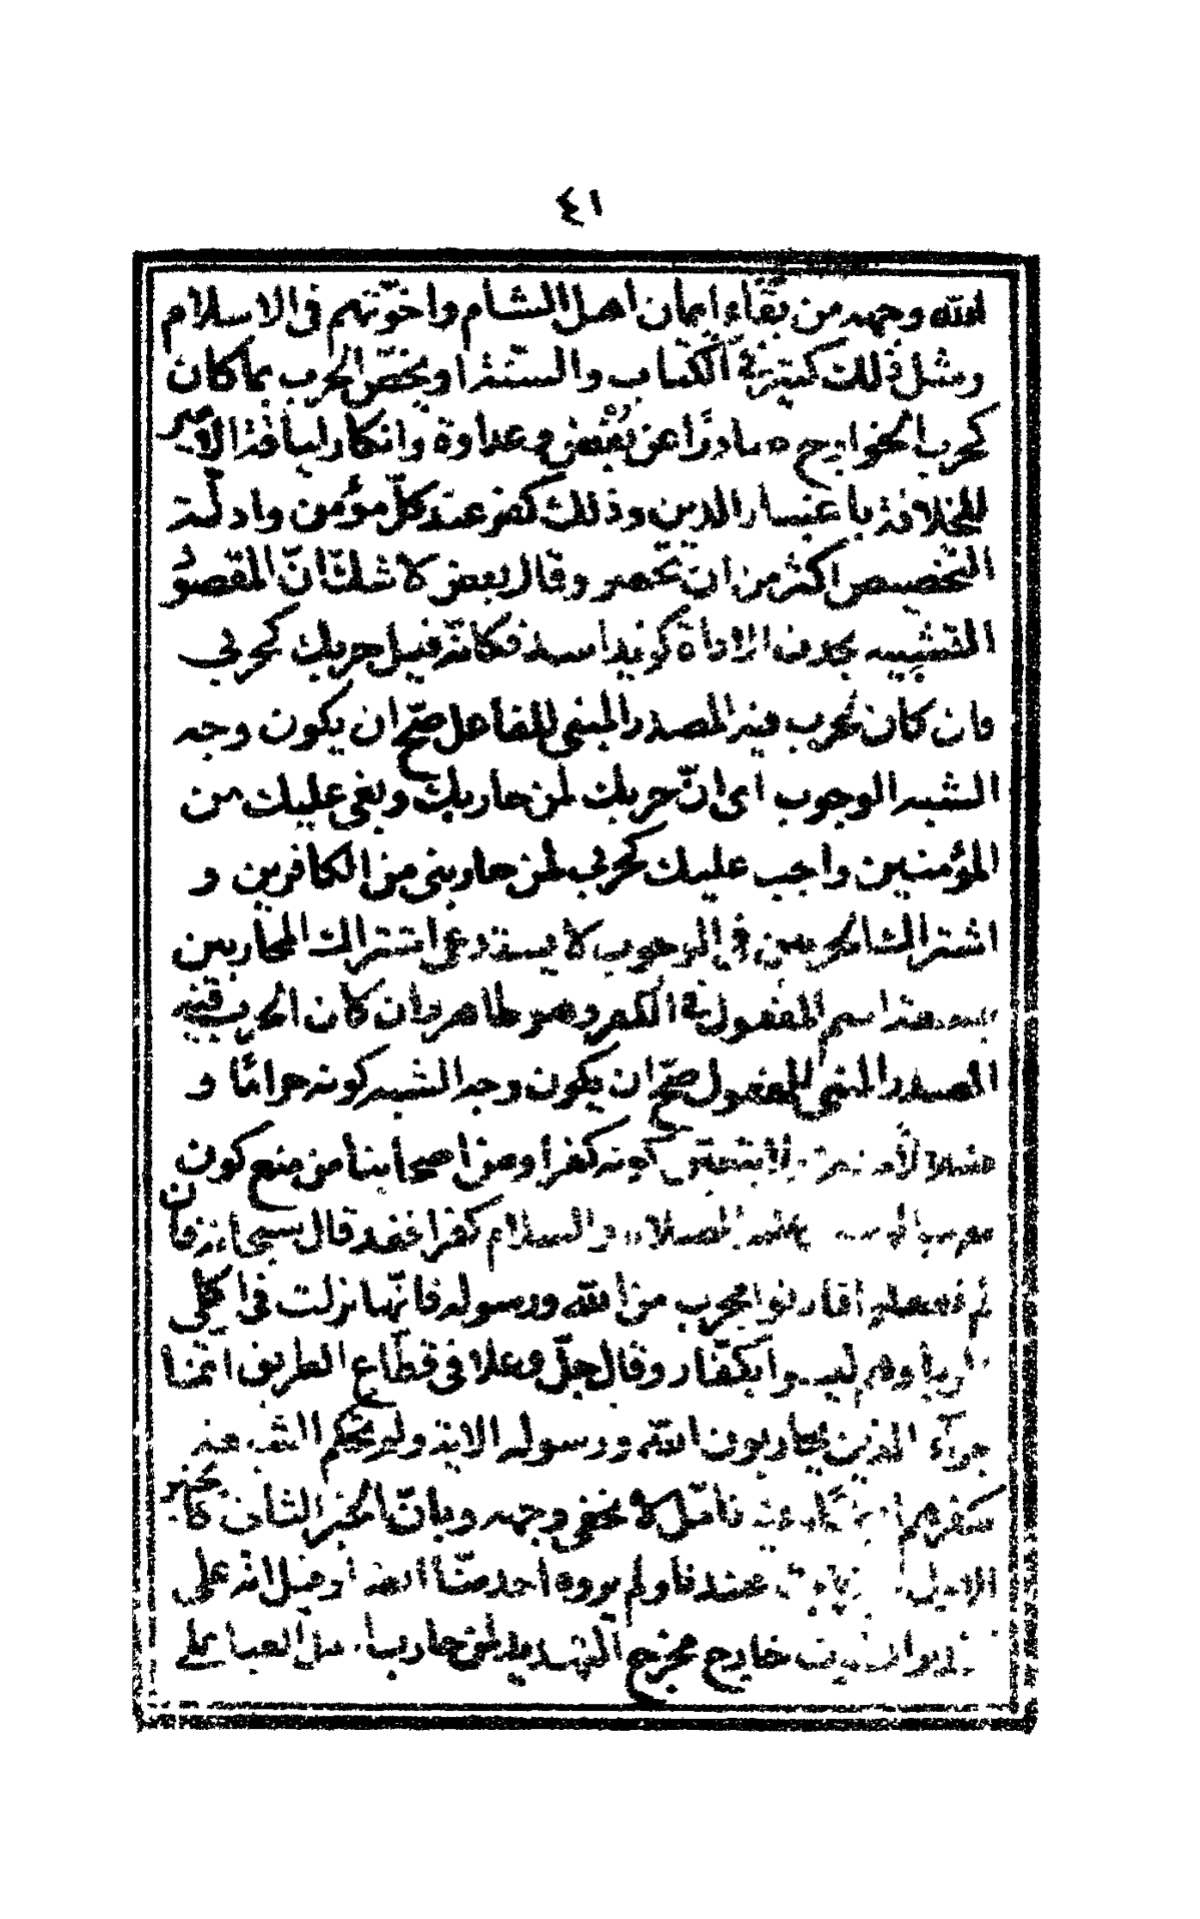 ٤١
الله وجهه من بقاء ايمان اهل الشام واخوتهم فى الاسلام
ومثل ذلك كثير فى الكتاب والسنة او يخص الحرب بما كان
كحرب الخوارج صادرا عن بغض وعداوة وانكار لياقة الامير
للخلافة باعتبار الدين وذلك كفر عند كل مؤمن وادلة
التخصيص اكثر من ان تحصر وقال بعض لا شك ان المقصود
التشبيه بحذف الاداة كزيد اسد فكانه قيل حربك كحربى
فان كان الحرب فيه المصدر المبنى للفاعل صح ان يكون وجه
الشبه الوجوب اى ان حربك لمن حاربك وبغى عليك من
المؤمنين واجب عليك كحربى لمن حاربنى من الكافرين و
اشتراك الحربين فى الوجوب لا يستدعى اشتراك المحاربين
اسم المفعول فى الكفر وهو ظاهر وان كان الحرب فيه
المصدر المبنى للمفعول صح ان يكون وجه الشبه كونه حراما و
كونه كفرا ومن اصحابنا من منع كون
عليه الصلاة والسلام كفرا فقد قال سبحانه فان
لم تفعلوا فأذنوا بحرب من الله ورسوله فانها نزلت فى اكلى
الربا وهم ليسوا بكفار وقال جل وعلا فى قطاع الطريق انما
جزاء الذين يحاربون الله ورسوله الاية ولم يحكم
بكفرهم تأمل لا يخفى وجهه وبان الخبر الثانى كالخبر
الاول عندنا ولم يروه احد منا او قيل انه على
خارج مخرج التهديد لمن حارب